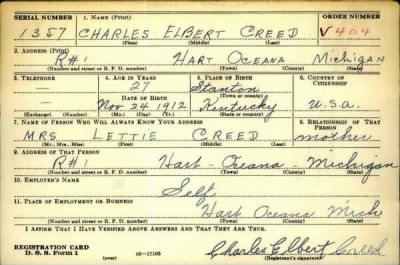 SERIAL NUMBER 1. NAME (Print) ORDER NUMBER
1357 CHARLES ELBERT CREED V404
(First) (Middle) (Last)
2. ADDRESS (Print)
R#1 HART OCEANA MICHIGAN
(Number and street or R. F. D. number) (Town) (County) (State)
3. TELEPHONE 4. AGE IN YEARS 5. PLACE OF BIRTH 6. COUNTRY OF CITIZENSHIP
— 27 Stanton
DATE OF BIRTH (Town or county)
— Nov 24 1912 Kentucky U.S.A.
(Exchange) (Number) (Mo.) (Day) (Yr.) (State or country)
7. NAME OF PERSON WHO WILL ALWAYS KNOW YOUR ADDRESS 8. RELATIONSHIP OF THAT PERSON
MRS LETTIE CREED mother
(Mr., Mrs., Miss) (First) (Middle) (Last)
9. ADDRESS OF THAT PERSON
R#1 Hart - Oceana - Michigan
(Number and street or R. F. D. number) (Town) (County) (State)
10. EMPLOYER'S NAME
Self
11. PLACE OF EMPLOYMENT OR BUSINESS
Hart Oceana Mich
(Number and street or R. F. D. number) (Town) (County) (State)
I AFFIRM THAT I HAVE VERIFIED ABOVE ANSWERS AND THAT THEY ARE TRUE.
REGISTRATION CARD
D. S. S. Form 1 (over) 16—17105 Charles Elbert Creed
(Registrant's signature)